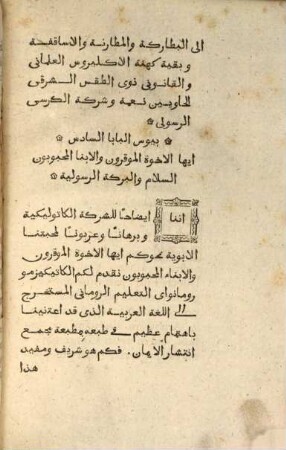 الى البطاركة والمطارنة والاساقفة
وبقية كهنة الاكليروس العلماني
والقانوني ذوى الطقس الشرقي
الحاويين نعمة وشركة الكرسى
الرسولي
* بيوس البابا السادس *
ايها الاخوة الموقرون والابنا المحبوبون
* السلام والبركة الرسولية *
اننا ايضاحًا للشركة الكاتوليكية
وبرهانًا وعربونًا لمحبتنا
الابوية نحوكم ايها الاخوة الموقرون
والابناء المحبوبون نقدم لكم الكاتيكيزمو
رومانواى التعليم الروماني المستخرج
الى اللغة العربية الذى قد اعتنينا
باهتمام عظيم في طبعه بمطبعة مجمع
انتشار الايمان. فكم هو شريف ومفيد
هذا